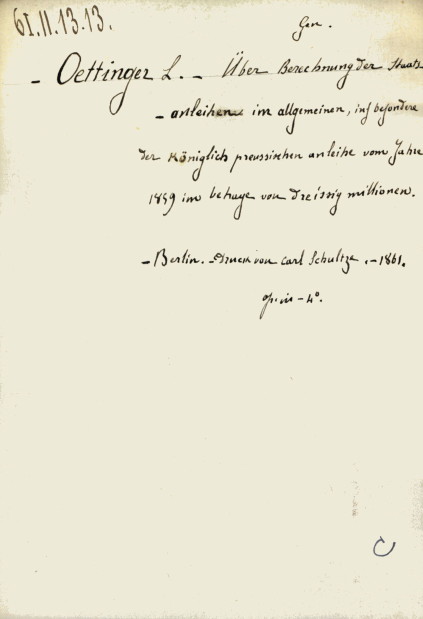 61.11.13.13.
Gen.
- Oettinger L. - Über Berechnung der Staats
- anleihen im allgemeinen, insbesondere
der Königlich preussischen anleihe vom Jahre
1859 im betrage von dreissig millionen.
- Berlin. - Druck von Carl Schultze. - 1861.
op. in - 4°.
C